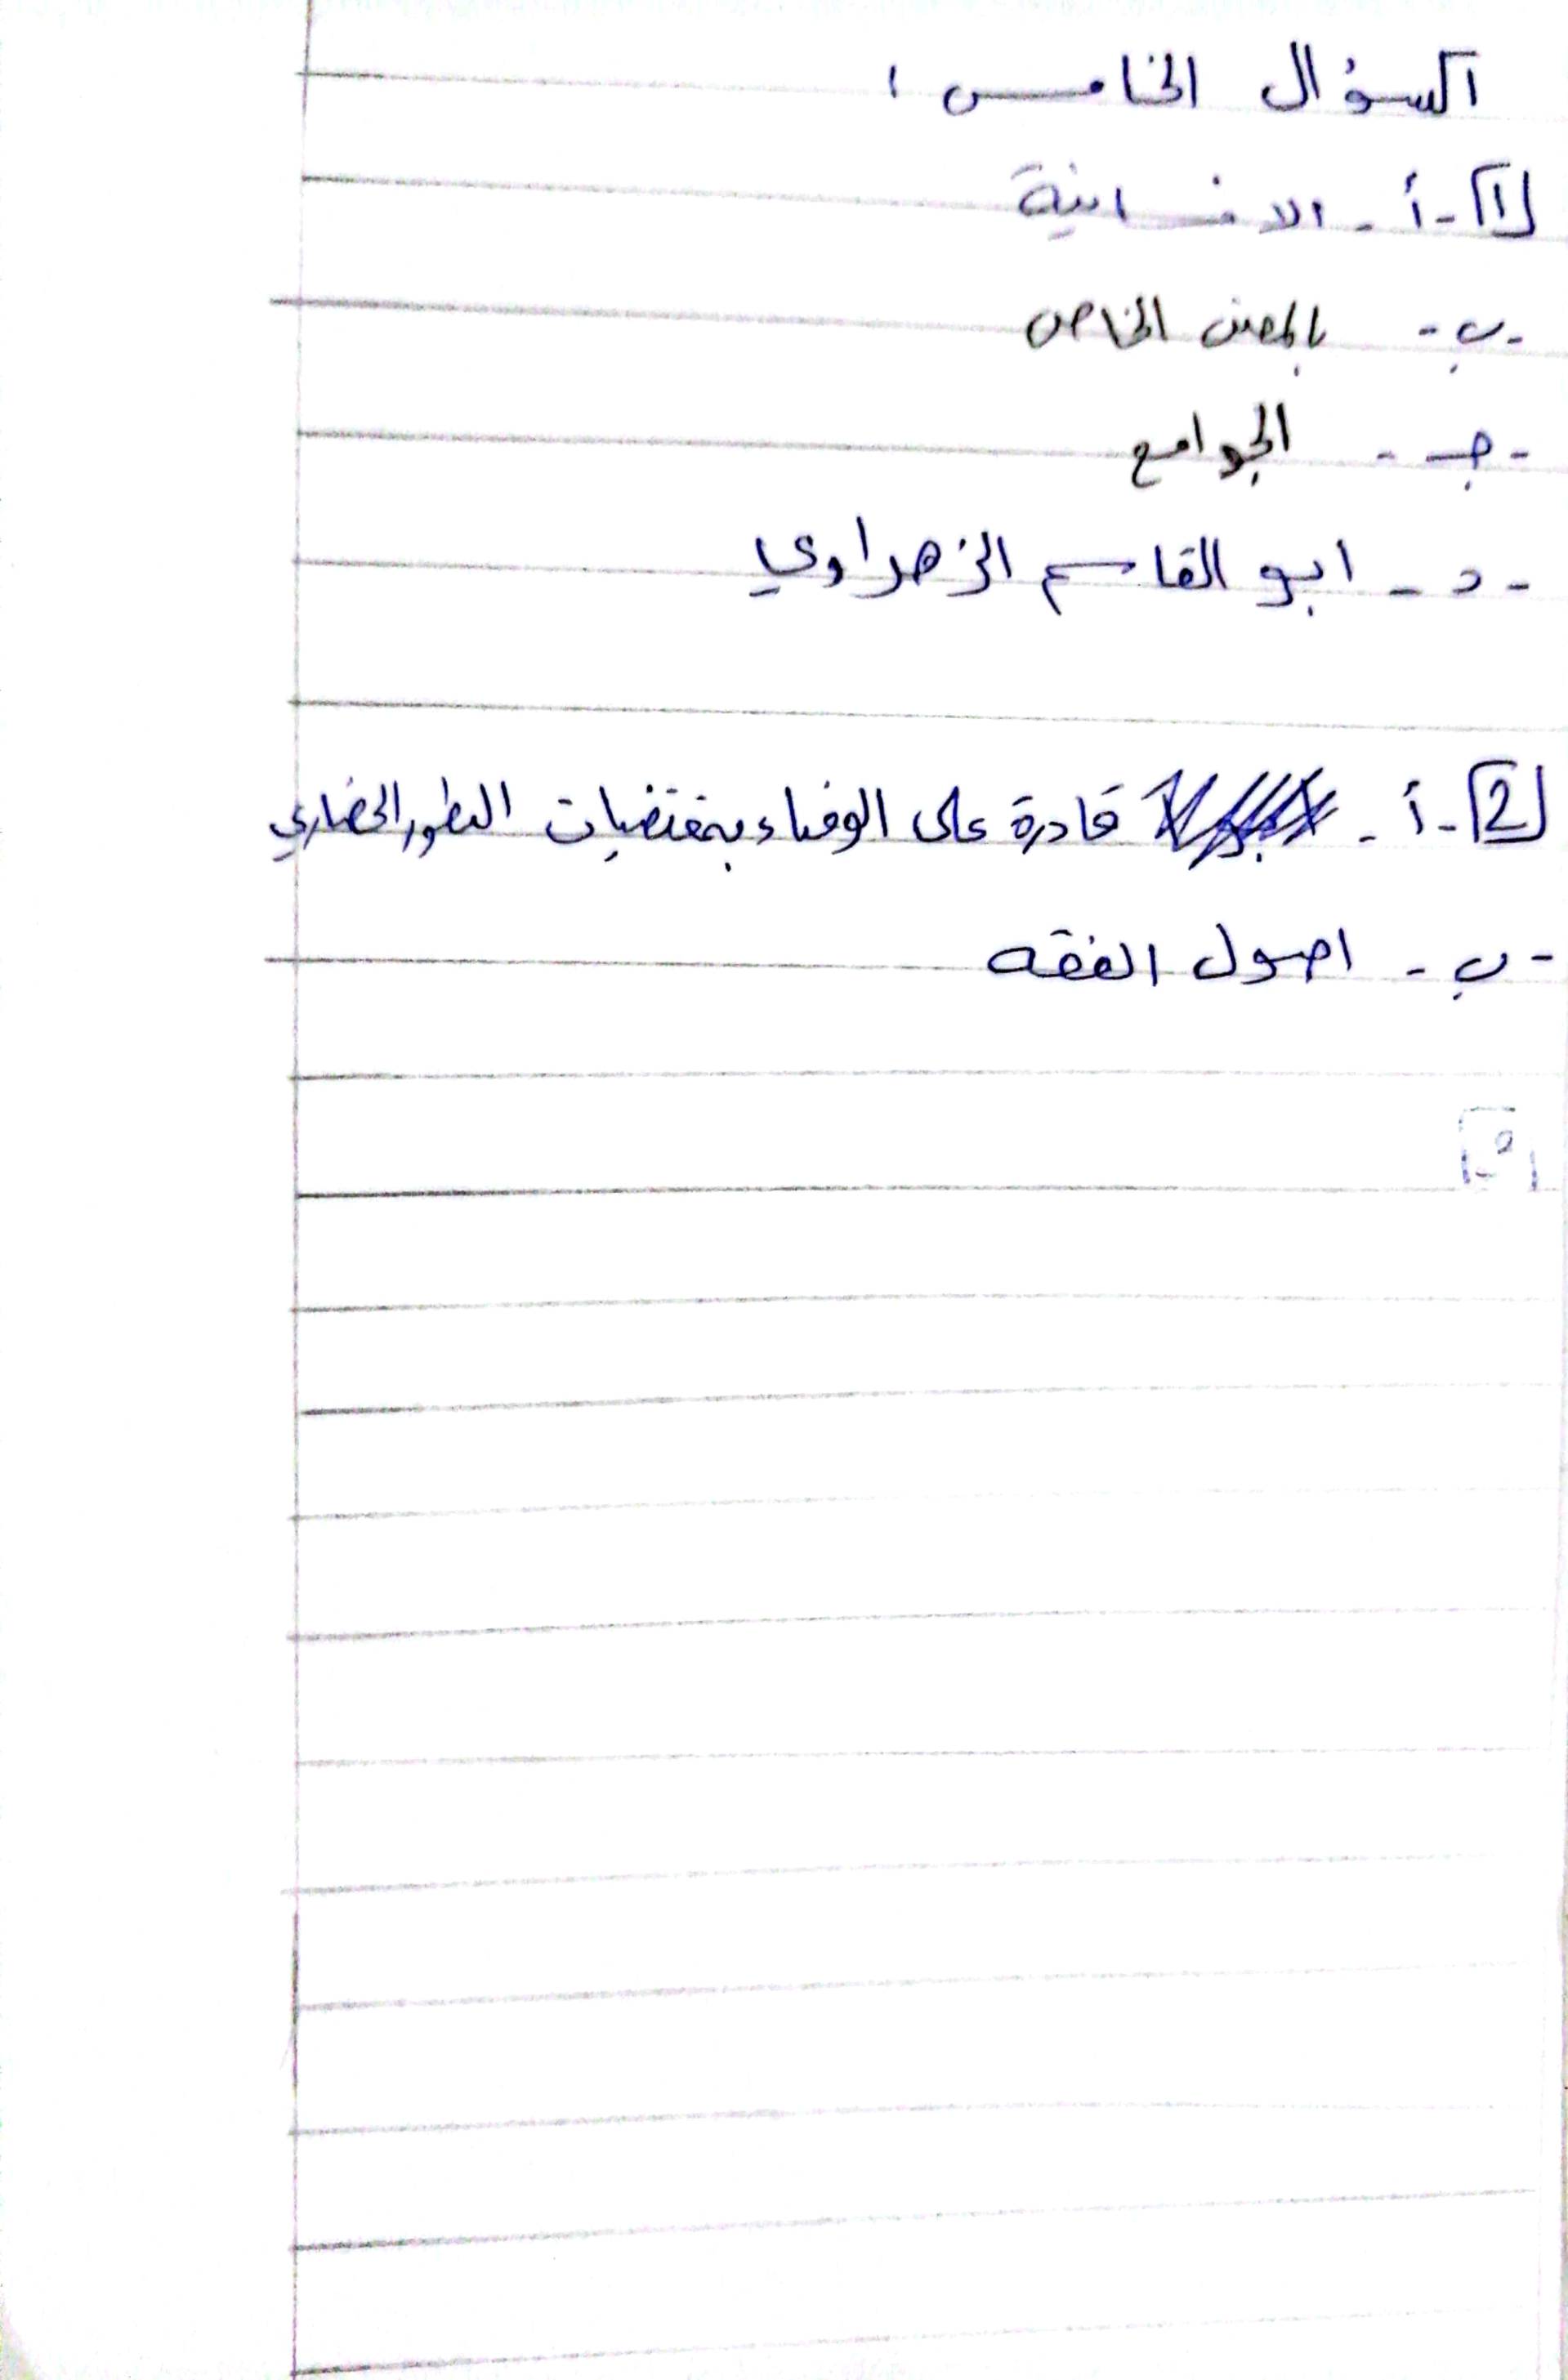 السؤال الخامس :
1 - أ - الانسانية
- ب - بالمعنى الخاص
- جـ - الجوامع
- د - ابو القاسم الزهراوي
2 - أ - قادرة على الوفاء بمقتضيات التطور الحضاري
- ب - اصول الفقه